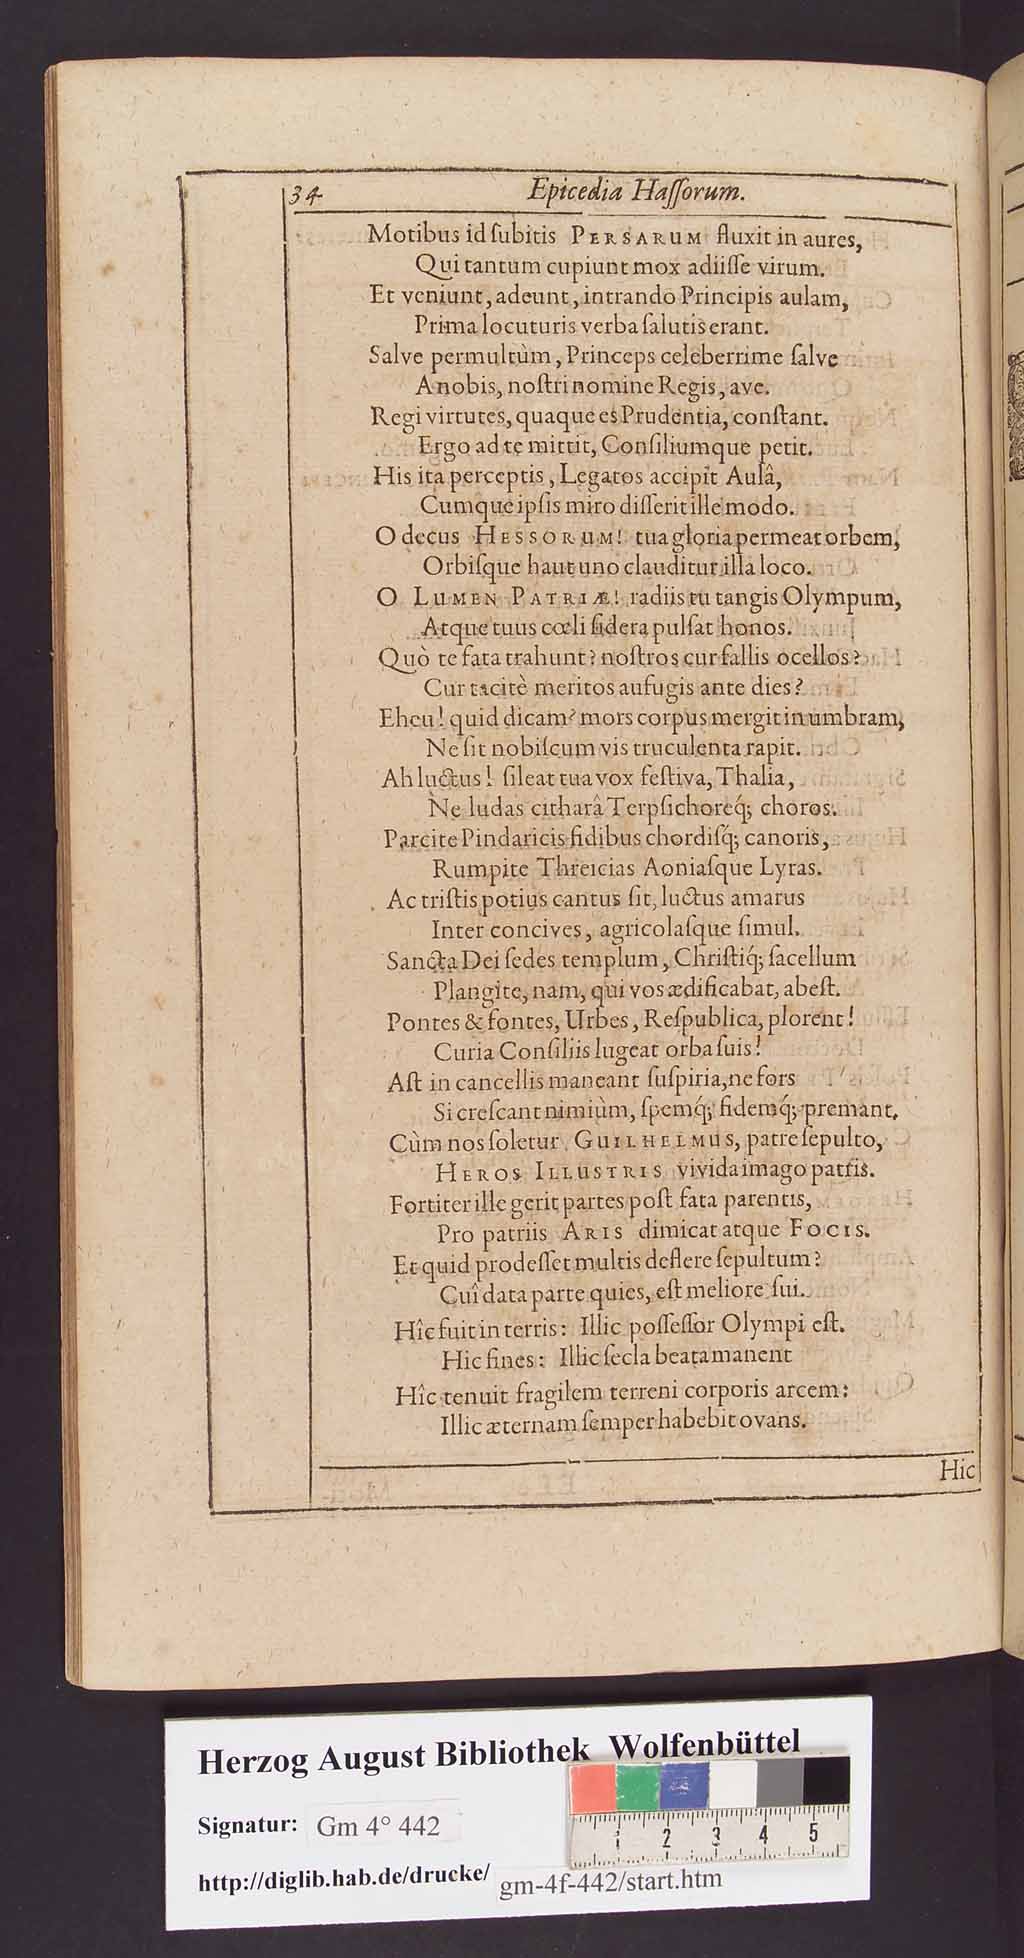 34 Epicedia Haſſorum.
Motibus id ſubitis PERSARUM fluxit in aures,
Qui tantum cupiunt mox adiiſſe virum.
Et veniunt, adeunt, intrando Principis aulam,
Prima locuturis verba ſalutis erant.
Salve permultùm, Princeps celeberrime ſalve
A nobis, noſtri nomine Regis, ave.
Regi virtutes, quaque es Prudentia, conſtant.
Ergo ad te mittit, Conſiliumque petit.
His ita perceptis, Legatos accipit Aulâ,
Cumque ipſis miro diſſerit ille modo.
O decus HESSORUM! tua gloria permeat orbem,
Orbiſque haut uno clauditur illa loco.
O LUMEN PATRIÆ! radiis tu tangis Olympum,
Atque tuus cœli ſidera pulſat honos.
Quò te fata trahunt? noſtros cur fallis ocellos?
Cur tacitè meritos aufugis ante dies?
Eheu! quid dicam? mors corpus mergit in umbram,
Ne ſit nobiſcum vis truculenta rapit.
Ah luctus! ſileat tua vox feſtiva, Thalia,
Ne ludas citharâ Terpſichoreq́; choros.
Parcite Pindaricis fidibus chordiſq́; canoris,
Rumpite Threicias Aoniaſque Lyras.
Ac triſtis potius cantus ſit, luctus amarus
Inter concives, agricolaſque ſimul.
Sancta Dei ſedes templum, Chriſtiq́; ſacellum
Plangite, nam, qui vos ædificabat, abeſt.
Pontes & fontes, Urbes, Reſpublica, plorent!
Curia Conſiliis lugeat orba ſuis!
Aſt in cancellis maneant ſuſpiria, ne fors
Si creſcant nimiùm, ſpemq́; fidemq́; premant.
Cùm nos ſoletur GUILHELMUS, patre ſepulto,
HEROS ILLUSTRIS vivida imago patris.
Fortiter ille gerit partes poſt fata parentis,
Pro patriis ARIS dimicat atque FOCIS.
Et quid prodeſſet multis deflere ſepultum?
Cuî data parte quies, eſt meliore ſui.
Hîc fuit in terris: Illic poſſeſſor Olympi eſt.
Hic fines: Illic ſecla beata manent
Hîc tenuit fragilem terreni corporis arcem:
Illic æternam ſemper habebit ovans.
Hic
Herzog August Bibliothek Wolfenbüttel
Signatur: Gm 4° 442
http://diglib.hab.de/drucke/ gm-4f-442/start.htm
1 2 3 4 5